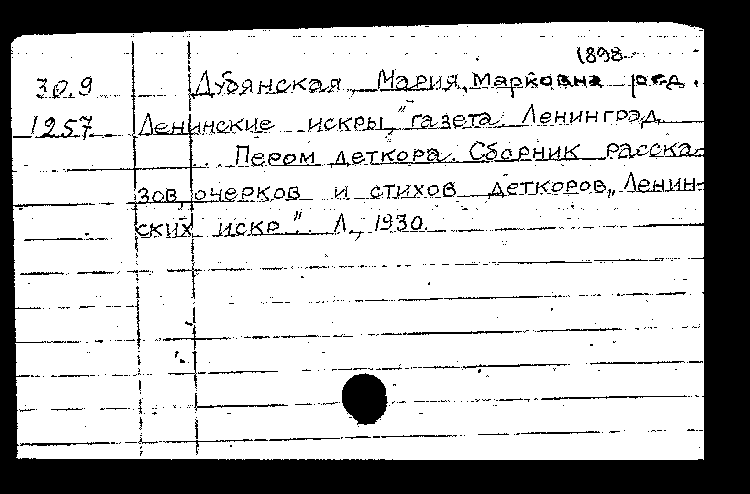 (1898-
30.9 Дубянская, Мария Марковна ред.
1257 Ленинские искры, "газета. Ленинград
Пером деткора. Сборник расска-
зов, очерков и стихов деткоров „Ленин-
ских искр". Л., 1930.